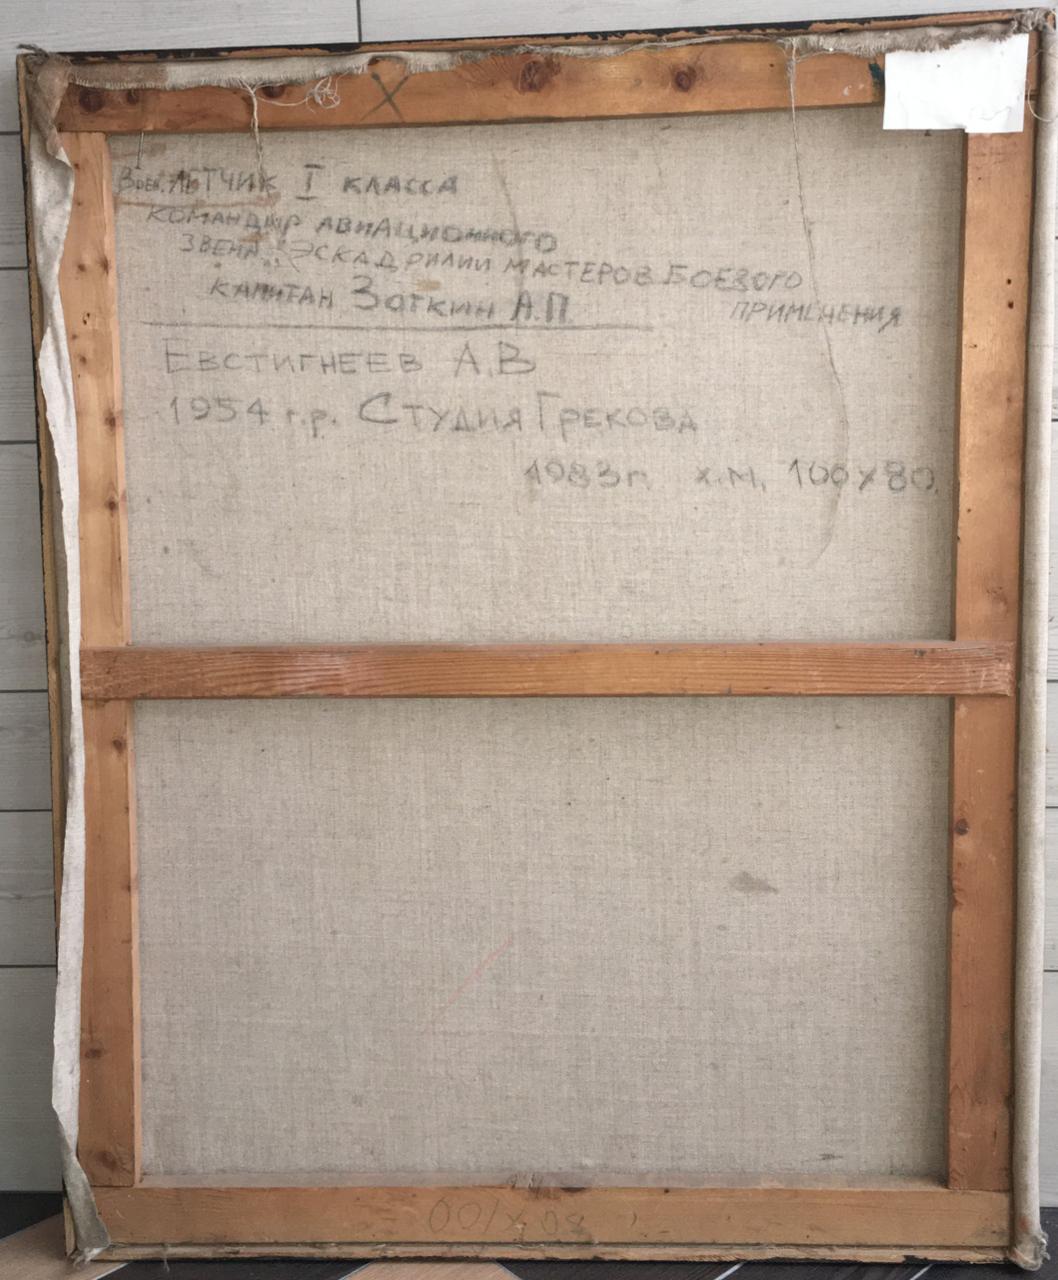 Воен. ЛЕТЧИК I КЛАССА
КОМАНДИР АВИАЦИОННОГО
ЗВЕНА „ЭСКАДРИЛИИ МАСТЕРОВ БОЕВОГО
ПРИМЕНЕНИЯ
КАПИТАН Зоткин А.П.
ЕВСТИГНЕЕВ А.В
1954 г.р. СТУДИЯ ГРЕКОВА
1983г. х.м. 100х80.
100/х08